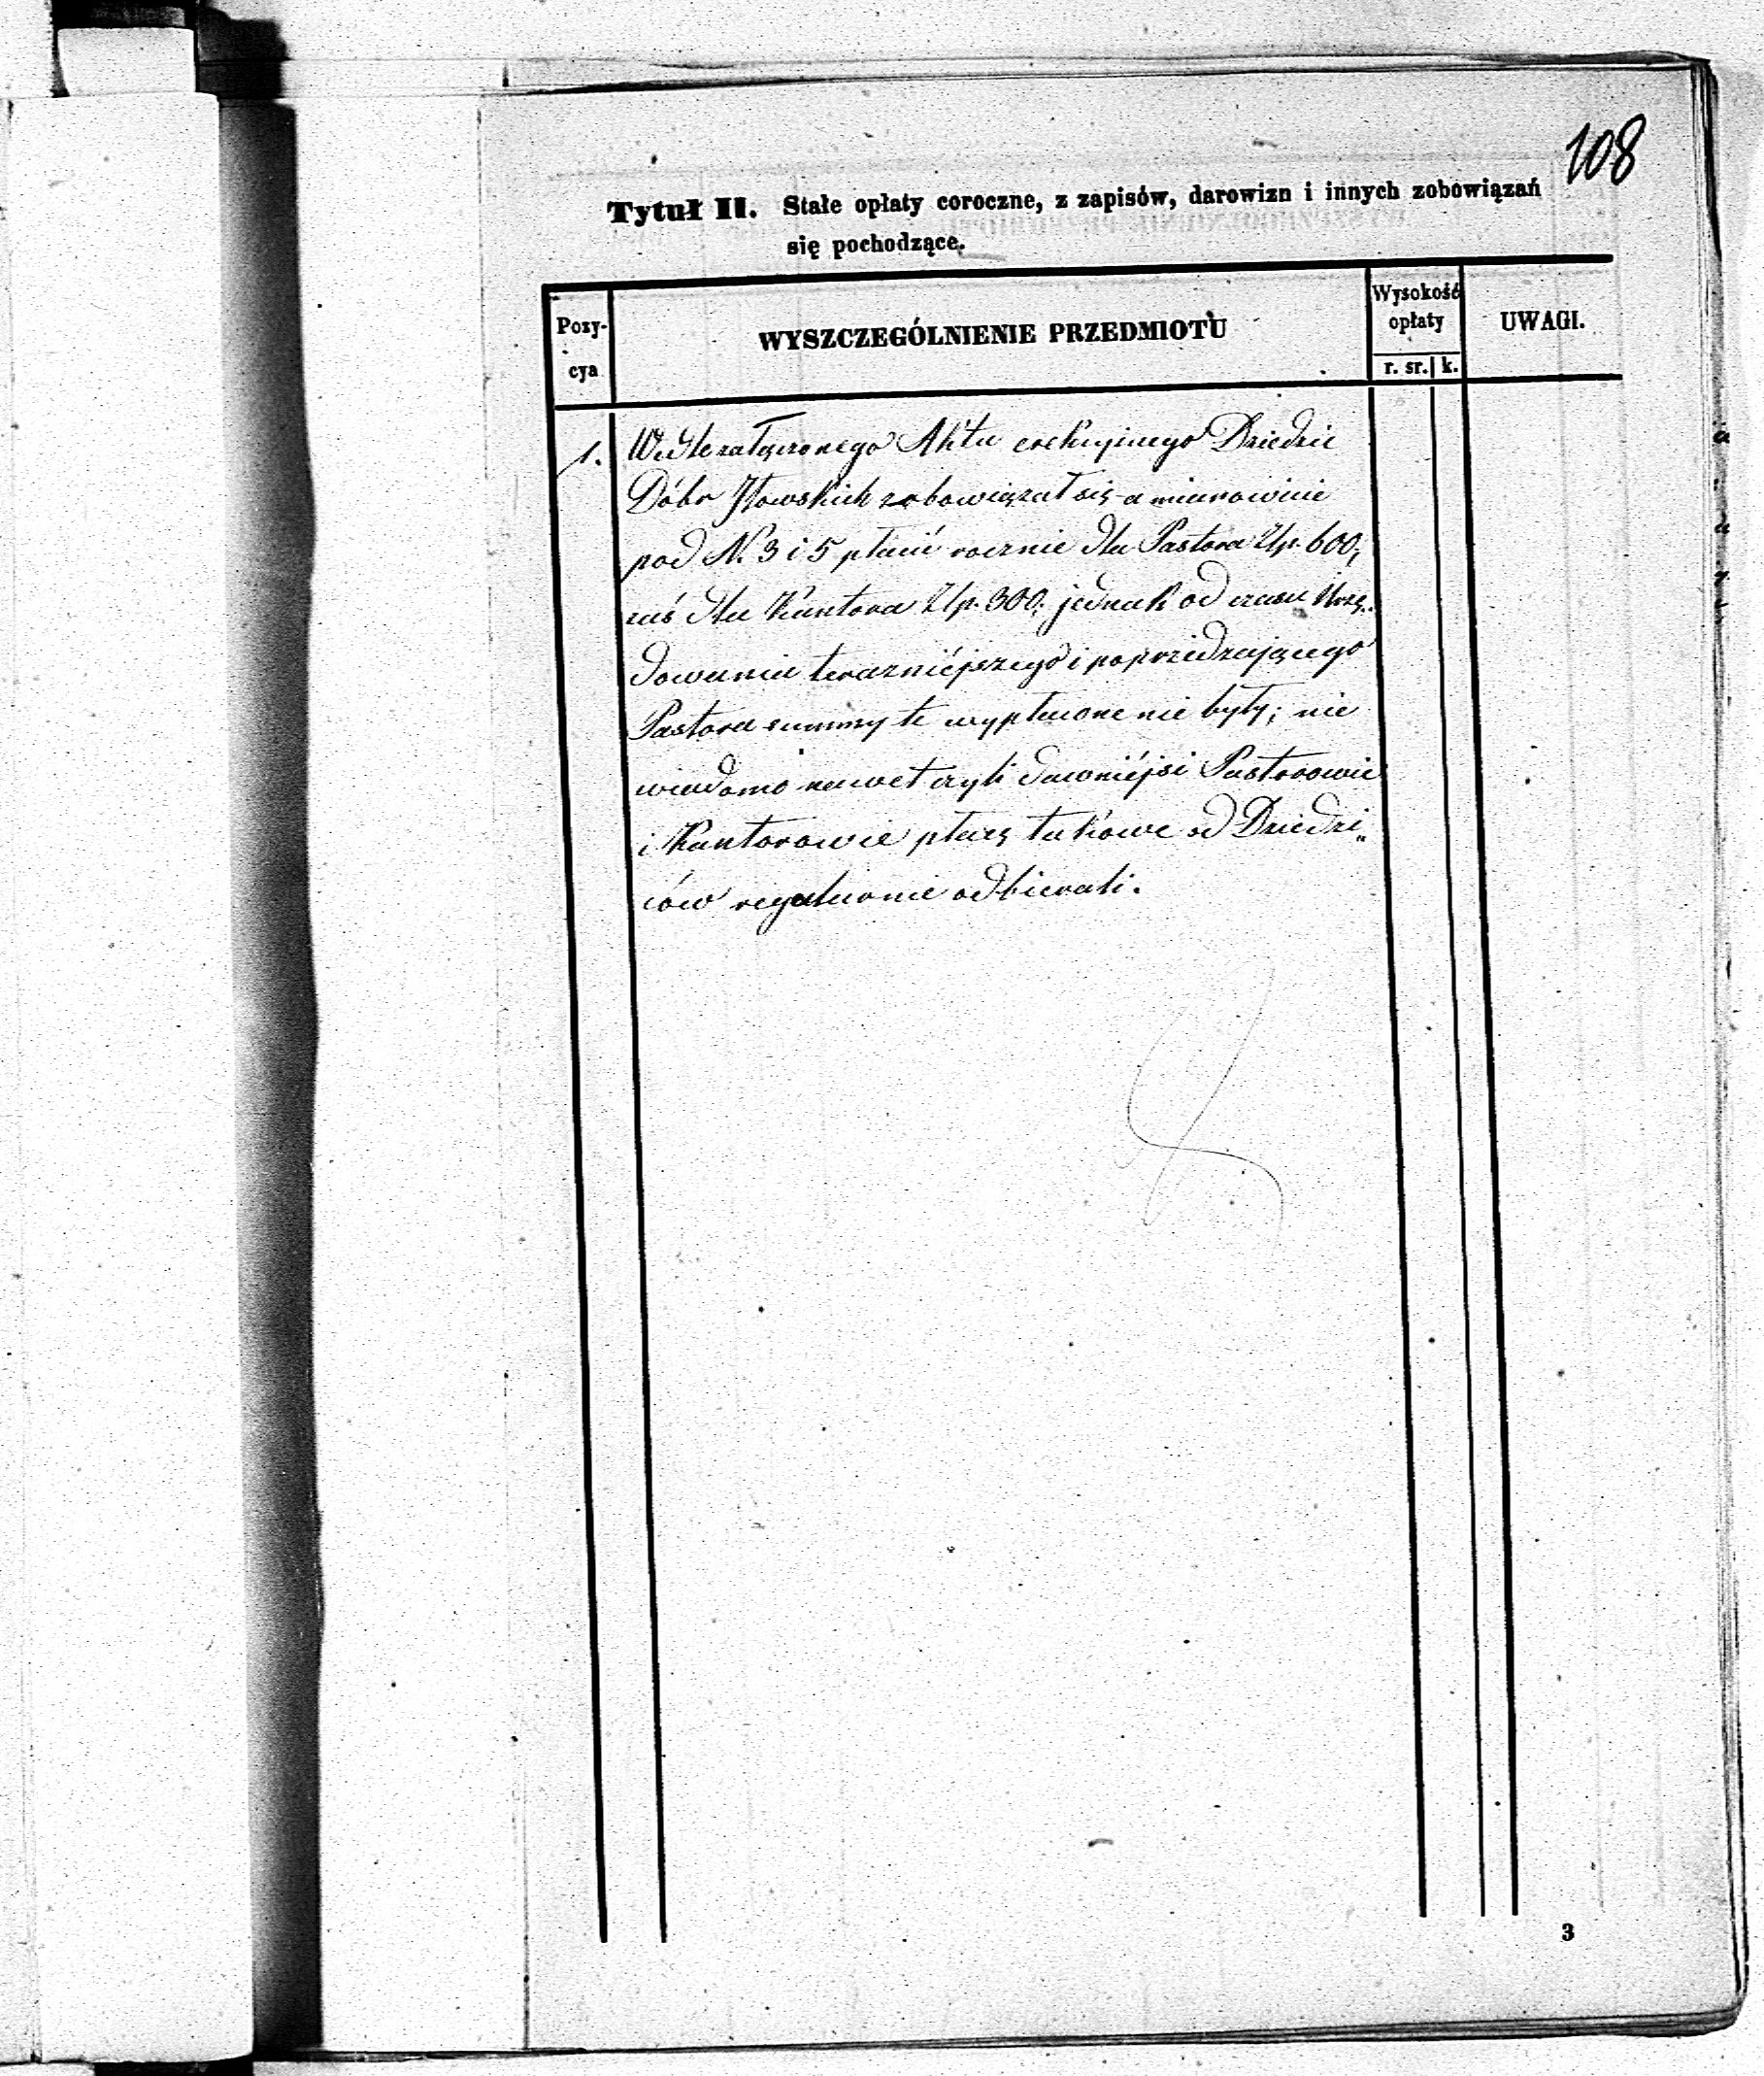 108
Tytuł II. Stałe opłaty coroczne, z zapisów, darowizn i innych zobowiązań
się pochodzące.
Pozy-
cya
WYSZCZEGÓLNIENIE PRZEDMIOTU
Wysokość
opłaty
r. sr. k.
UWAGI.
1. Wedle załączonego Aktu erekcyjnego Dziedzic
Dóbr Iłowskich zobowiązał się a mianowicie
pod N. 3 i 5 płacić rocznie dla Pastora Złp. 600,
zaś dla Kantora Złp. 300; jednak od czasu Urzę-
dowania teraźniéjszego i poprzedzającego
Pastora summy te wypłacone nie były; nie
wiadomo nawet czyli dawniéjsi Pastorowie
i Kantorowie płacę takowe od Dziedzi„
ców regularnie odbierali.
3